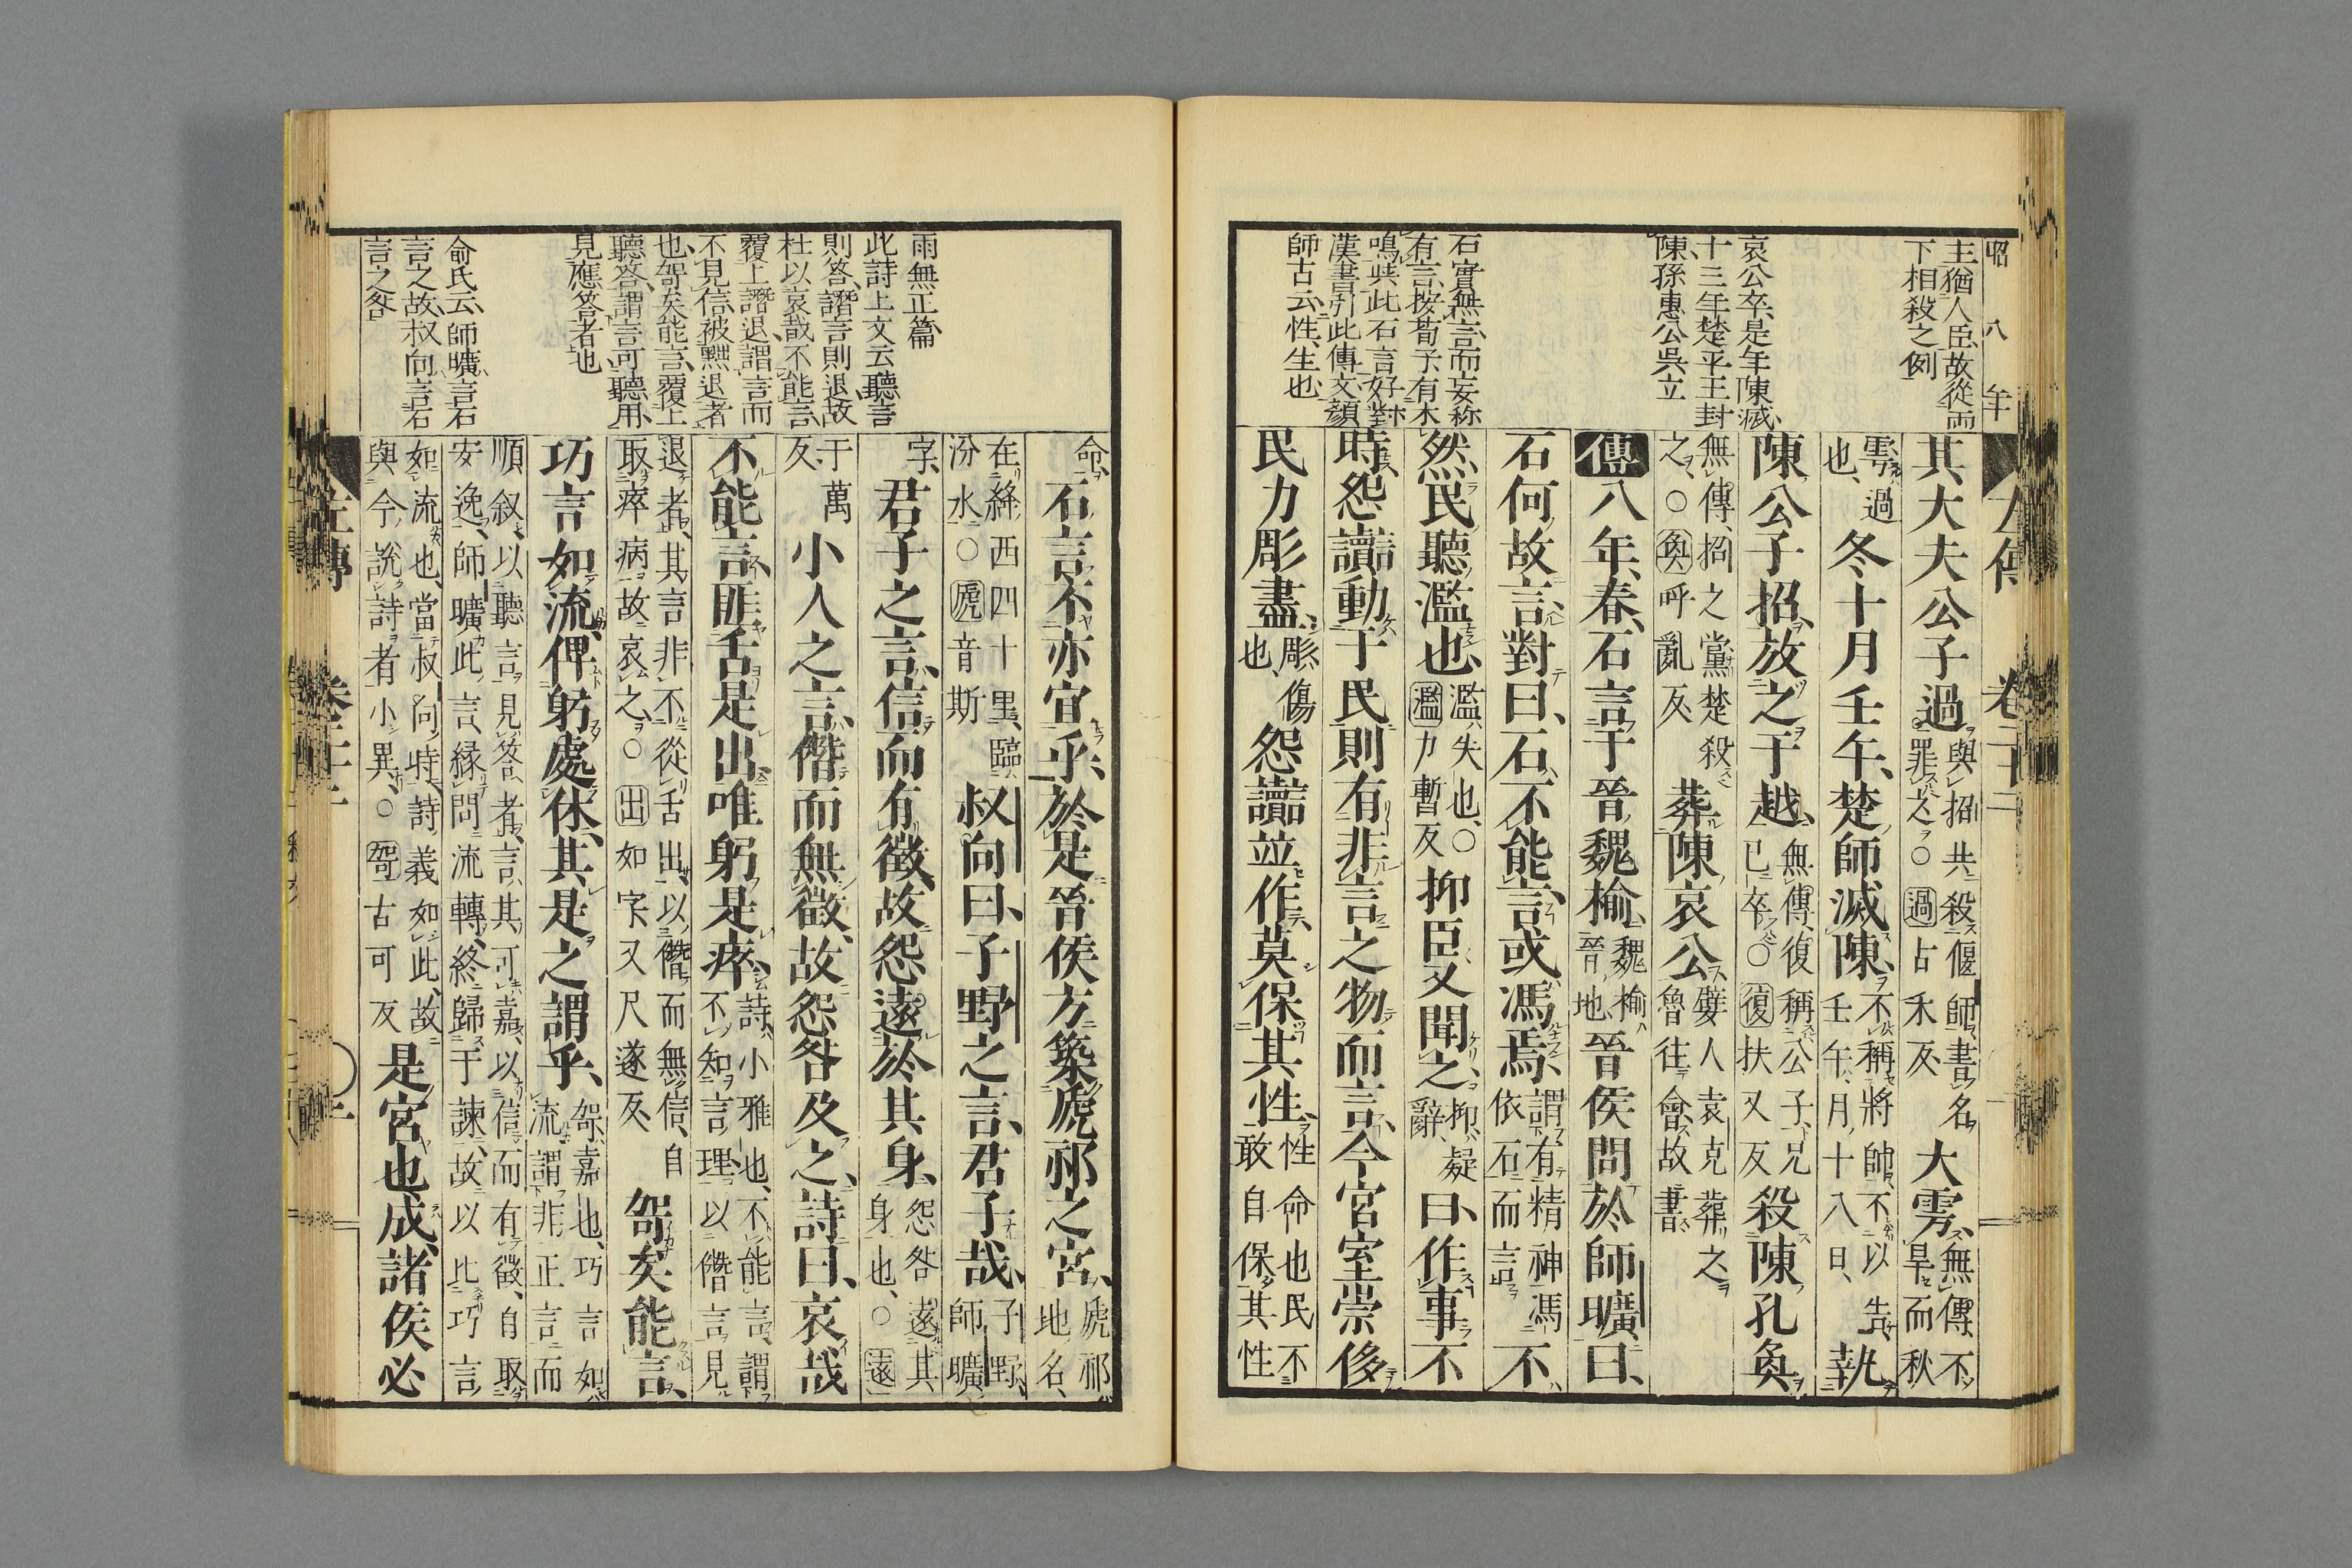 昭 八年
主猶人臣故從兩
下相殺之例
哀公卒是年陳滅
十三年楚平王封
陳孫惠公吳立
石實無言而妄称
有言按荀子有木
鳴與此石言好對
漢書引此傳文顔
師古云性生也
左傳 卷二十二
其大夫公子過與招共殺偃師書名罪之○過古禾反大雩無傳不旱而秋
雩過也冬十月壬午楚師滅陳不稱將帥不以告壬午月十八日執
陳公子招放之于越無傳復稱公子兄已卒○復扶又反殺陳孔奐
無傳招之黨楚殺之○奐呼亂反葬陳哀公嬖人袁克葬之魯往會故書
傳八年春石言于晉魏榆魏榆晉地晉侯問於師曠曰
石何故言對曰石不能言或馮焉謂有精神馮依石而言不
然民聽濫也濫失也○濫力暫反抑臣又聞之抑疑辭曰作事不
時怨讟動于民則有非言之物而言今宮室崇侈
民力彫盡彫傷也怨讟並作莫保其性性命也民不敢自保其性
雨無正篇
此詩上文云聽言
則答譖言則退故
杜以哀哉不能言
覆上譖退謂言而
不見信被黜退者
也哿矣能言覆上
聽答謂言可聽用
見應答者也
俞氏云師曠言石
言之故叔向言石
言之咎
命石言不亦宜乎於是晉侯方築虒祁之宮虒祁地名
在絳西四十里臨汾水○虒音斯叔向曰子野之言君子哉子野師曠
字君子之言信而有徵故怨遠於其身怨咎遠其身也○遠
于萬反小人之言僭而無徵故怨咎及之詩曰哀哉
不能言匪舌是出唯躬是瘁詩小雅也不能言謂不知言理以僭言見
退者其言非不從舌出以僭而無信自取瘁病故哀之○出如字又尺遂反哿矣能言
巧言如流俾躬處休其是之謂乎哿嘉也巧言如流謂非正言而
順叙以聽言見答者言其可嘉以信而有徵自取安逸師曠此言緣問流轉終歸于諫故以比巧言
如流也當叔向時詩義如此故與今說詩者小異○哿古可反是宮也成諸侯必
左傳 卷二十二